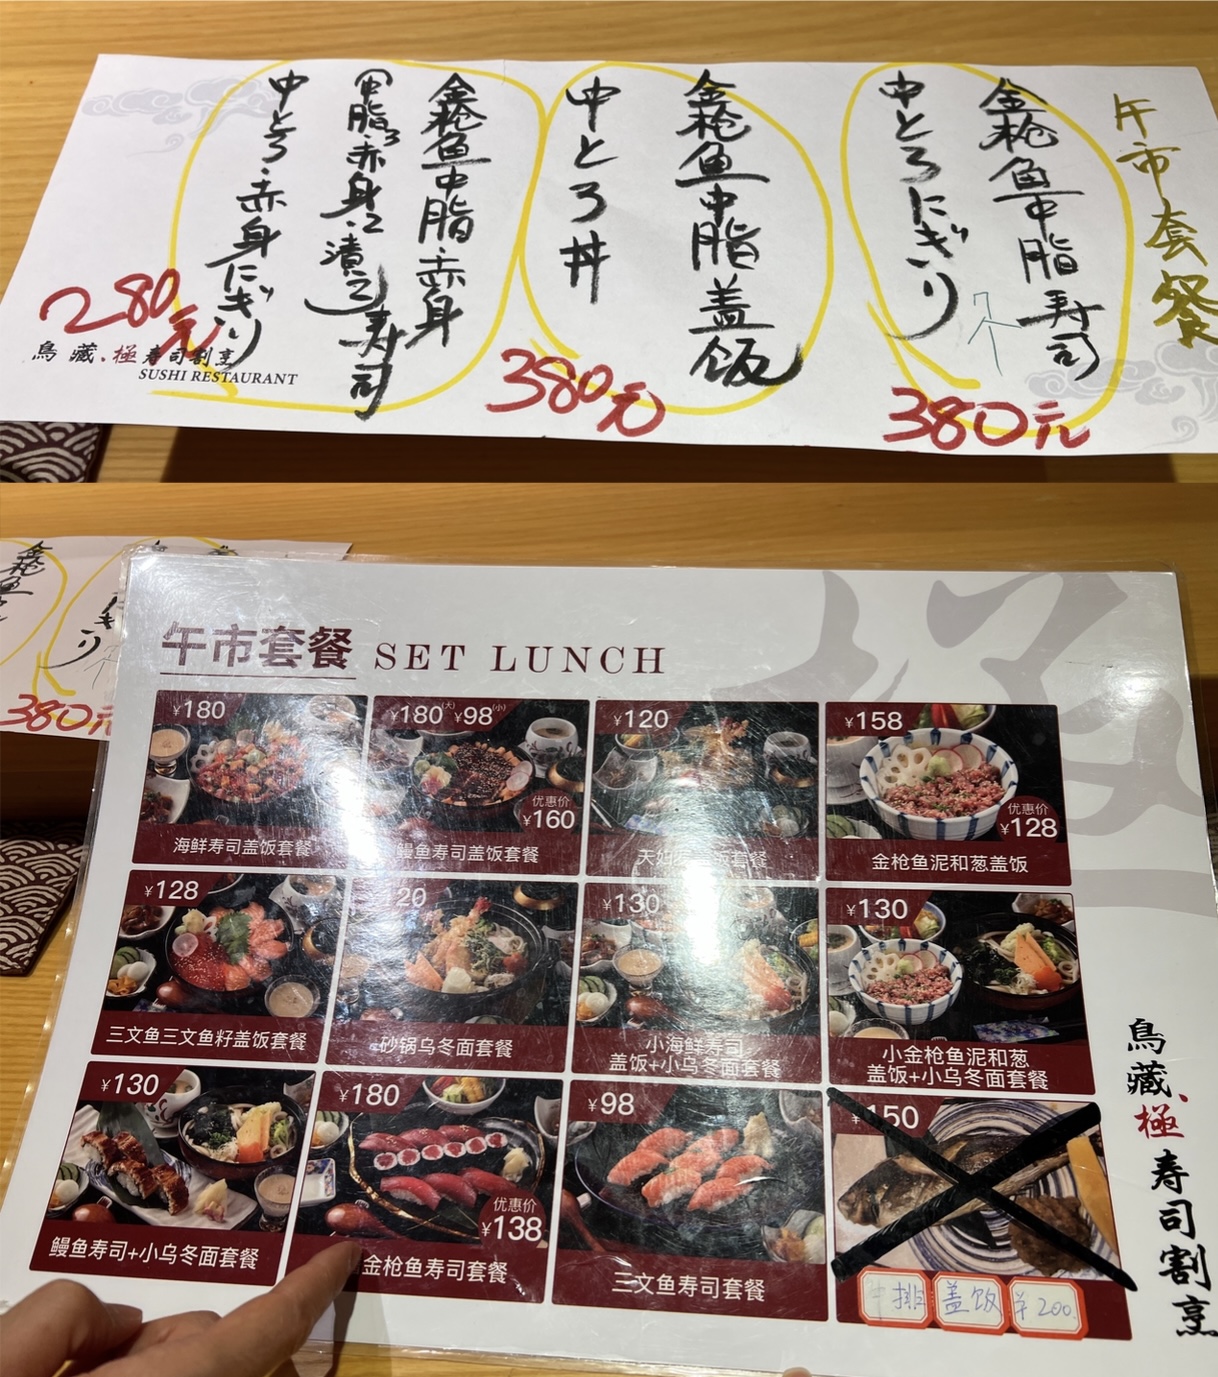 午市套餐
金枪鱼中脂寿司
中とろにぎり
380元
金枪鱼中脂盖饭
中とろ丼
380元
金枪鱼中脂·赤身
寿司
中とろ·赤身にぎり
280元
鳥藏·極寿司割烹
SUSHI RESTAURANT
金枪鱼
ぎり
380元
午市套餐 SET LUNCH
¥180
海鲜寿司盖饭套餐
¥180(大) ¥98(小)
优惠价
¥160
鳗鱼寿司盖饭套餐
¥120
套餐
¥158
优惠价
¥128
金枪鱼泥和葱盖饭
¥128
三文鱼三文鱼籽盖饭套餐
20
砂锅乌冬面套餐
¥130
小海鲜寿司
盖饭+小乌冬面套餐
¥130
小金枪鱼泥和葱
盖饭+小乌冬面套餐
¥130
鳗鱼寿司+小乌冬面套餐
¥180
优惠价
¥138
金枪鱼寿司套餐
¥98
三文鱼寿司套餐
150
排盖饭 ¥200
鳥藏·極寿司割烹